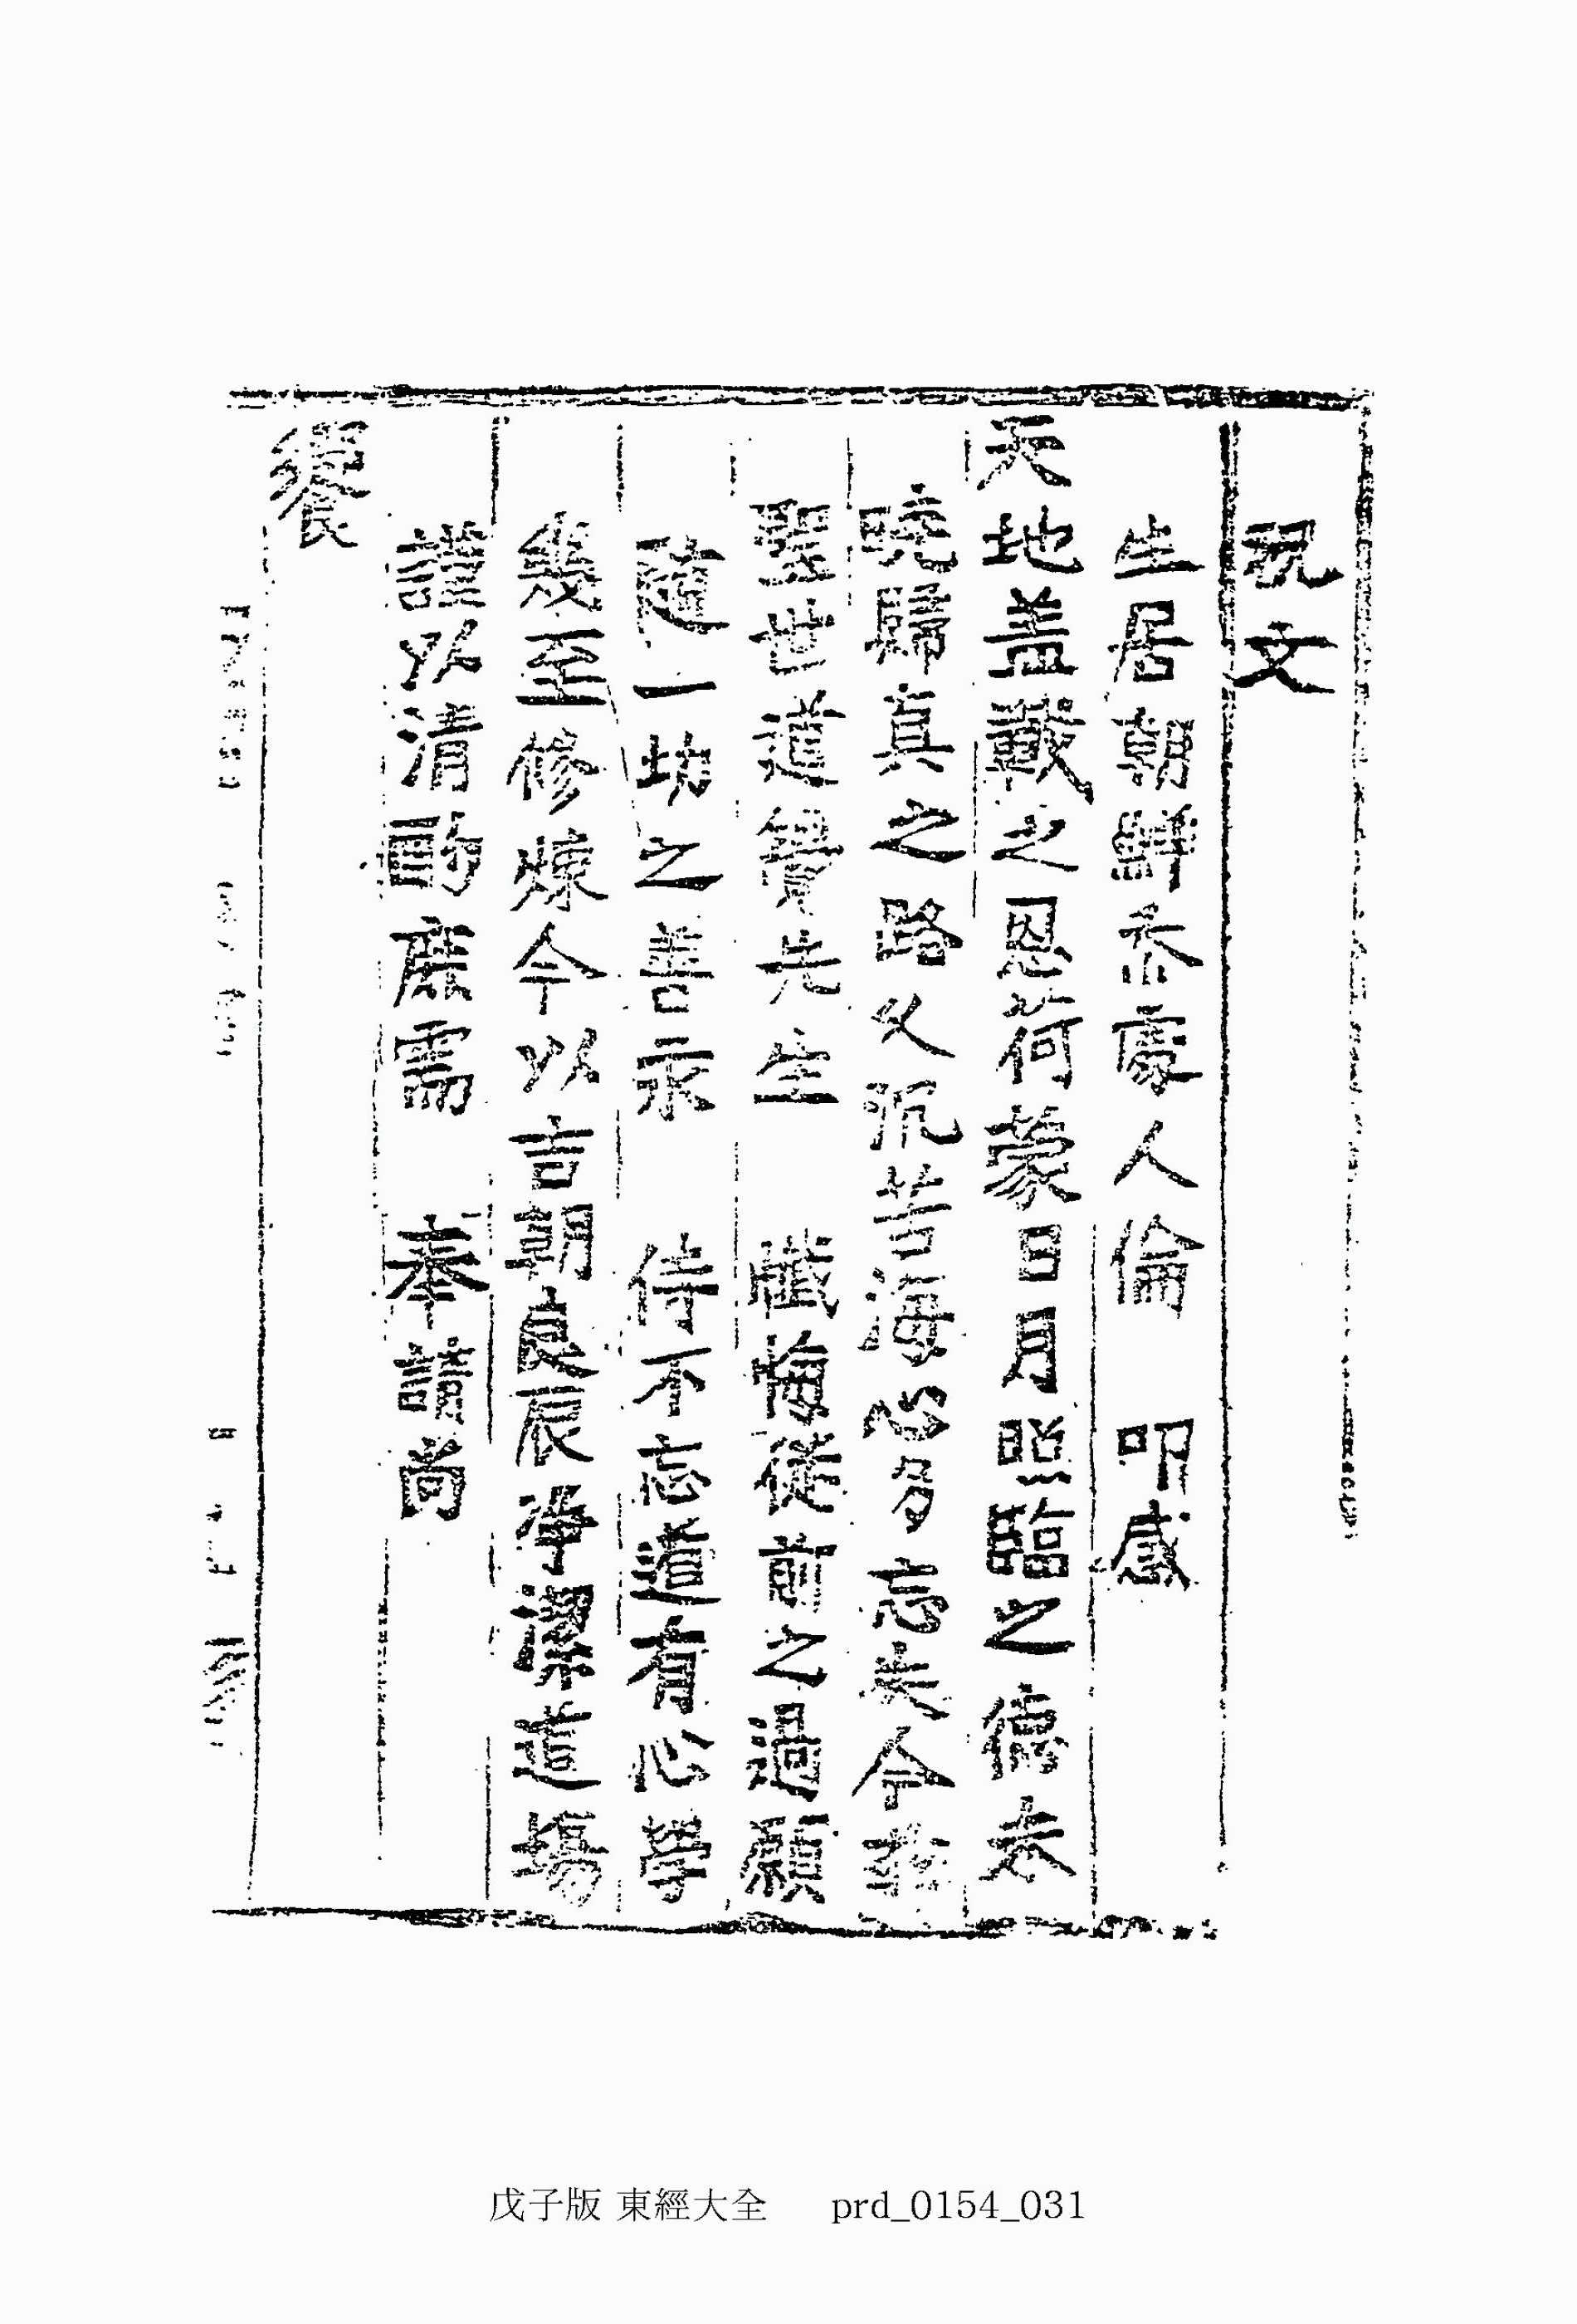 祝文
生居朝鮮忝處人倫 叩感
天地盖載之恩荷蒙日月照臨之德未
曉歸眞之路久沉苦海心多忘失今玆
聖世道覺先生 懺悔從前之過願
隨一切之善永 侍不忘道有心學
幾至修煉今以吉朝良辰淨潔道場
謹以清酌庶需 奉請尚
饗
戊子版 東經大全 prd_0154_031